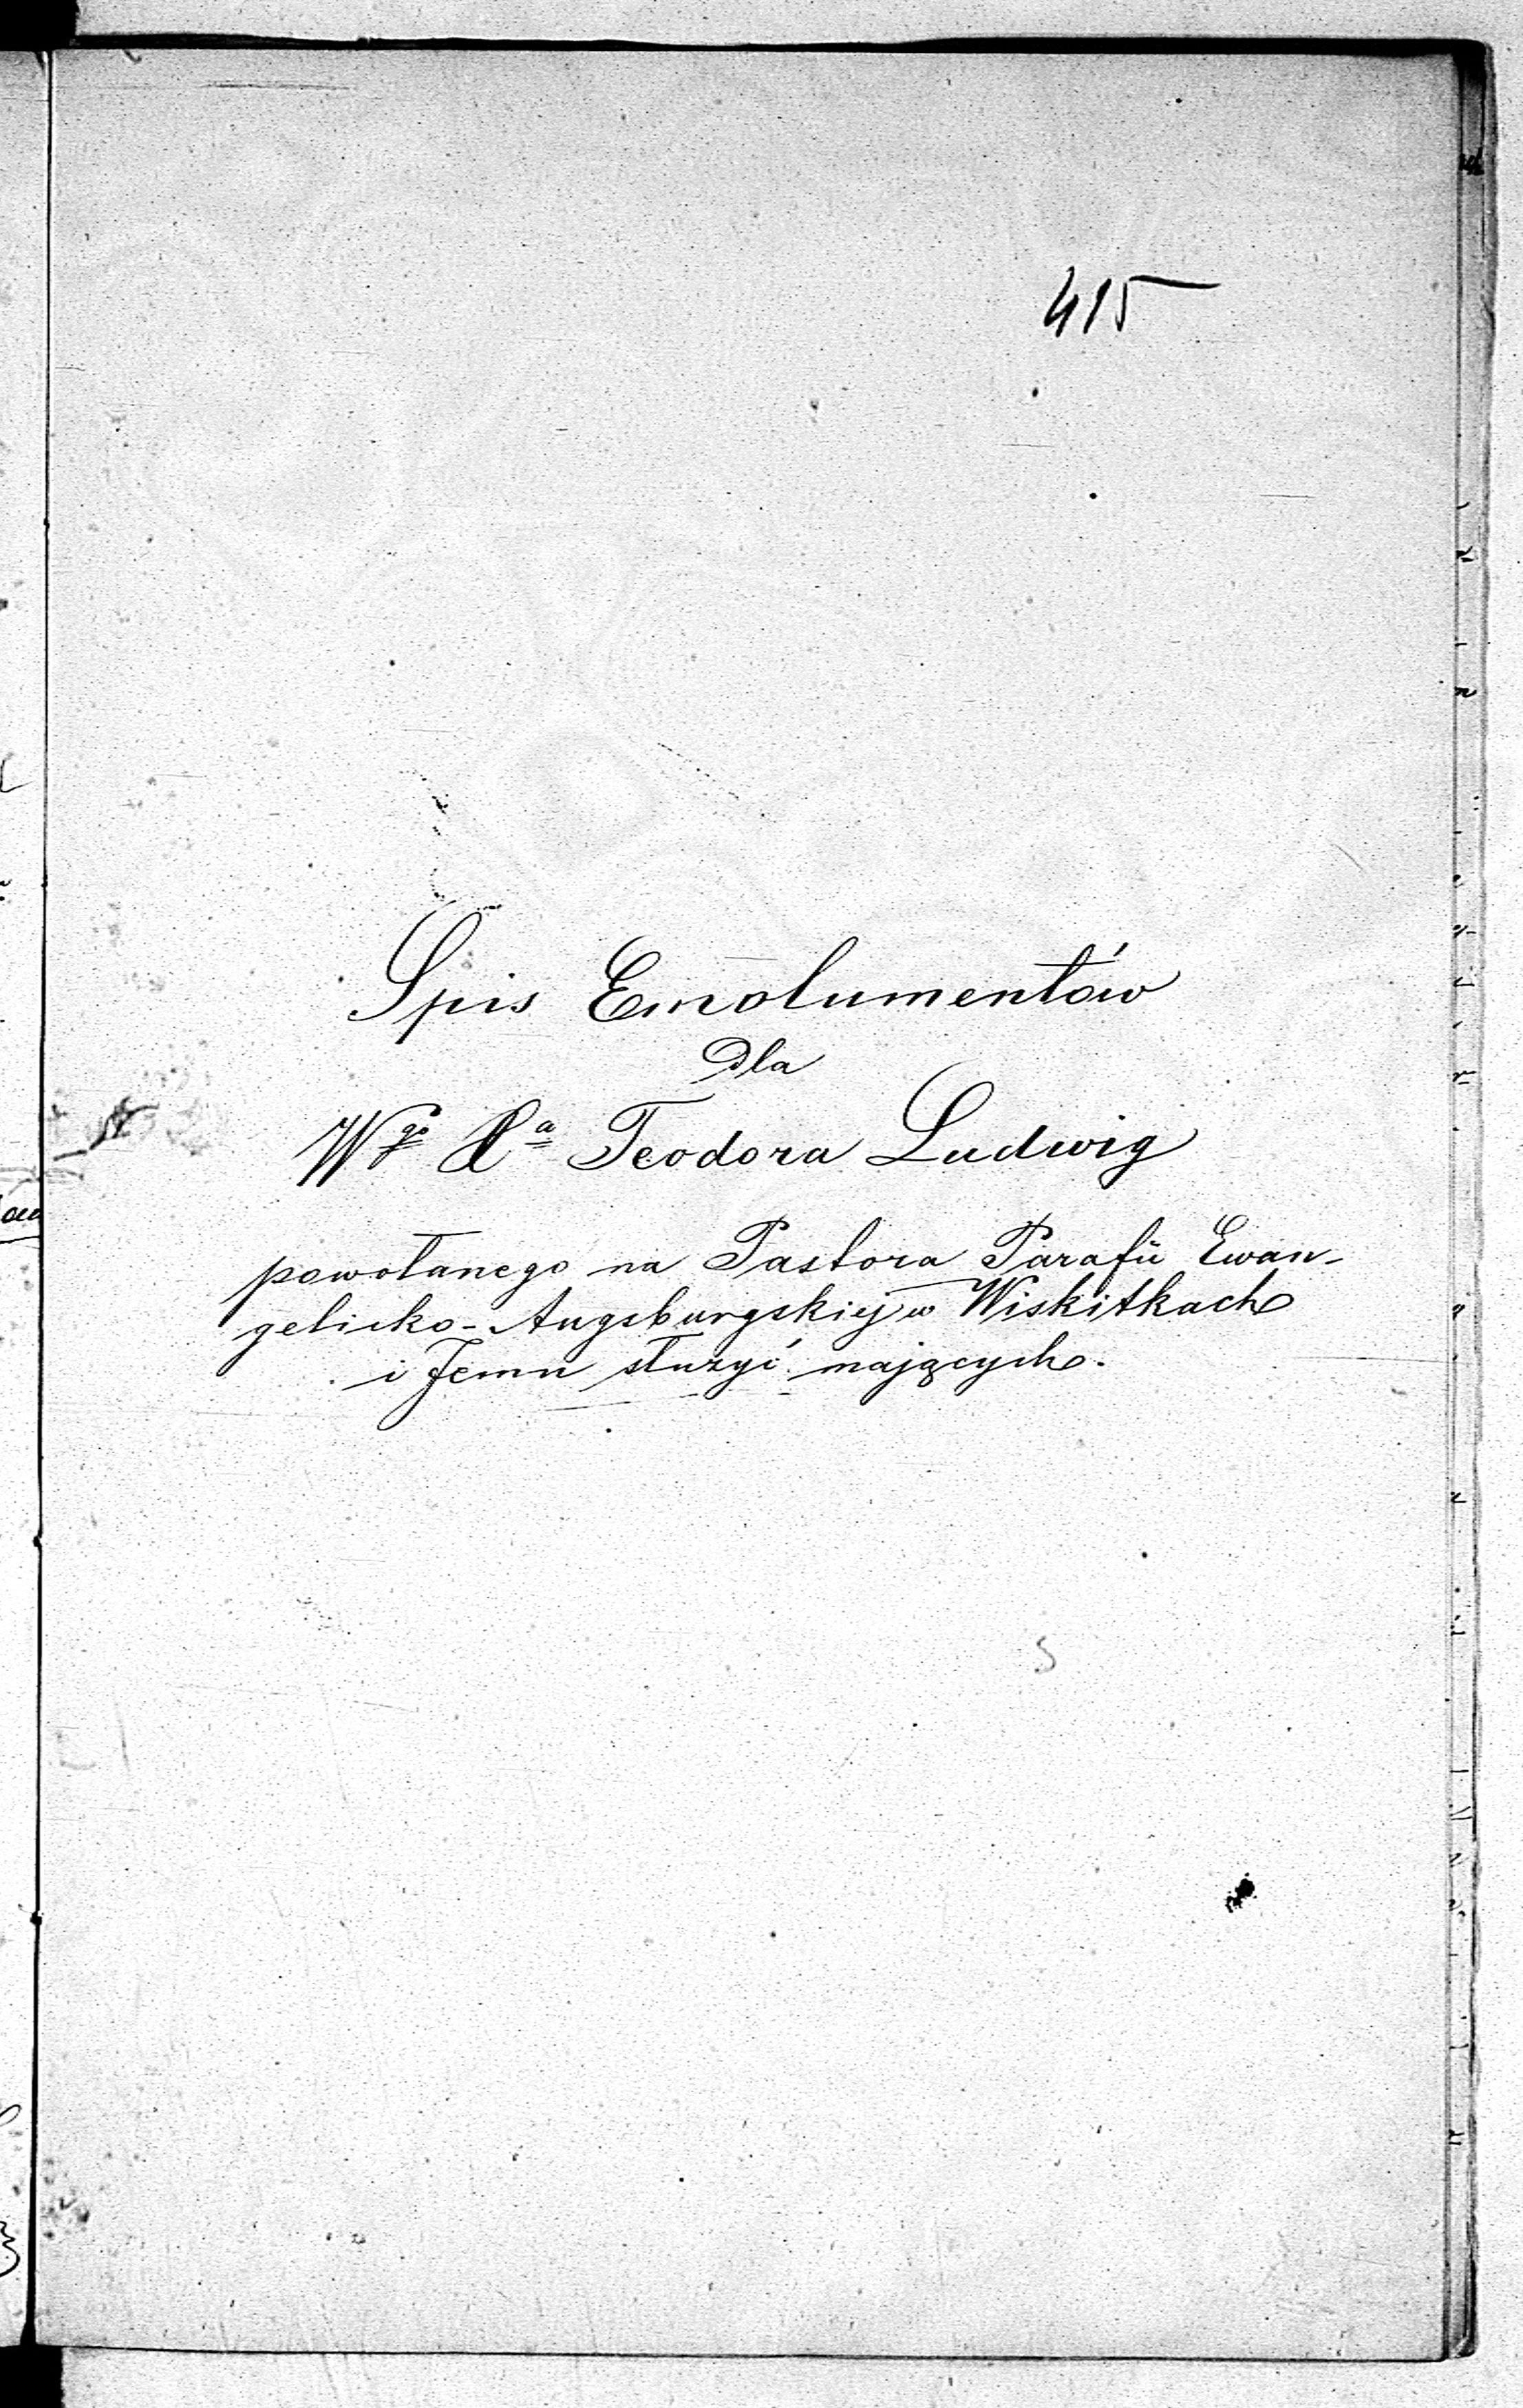 415
Spis Emolumentów
Dla
Wgo Xa Teodora Ludwig
powołanego na Pastora Parafii Ewan-
gelicko-Augsburgskiej w Wiskitkach
i Jemu służyć mających.